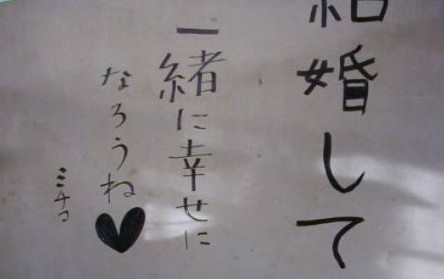 結婚して
一緒に幸せに
なろうね♥
ミチコ